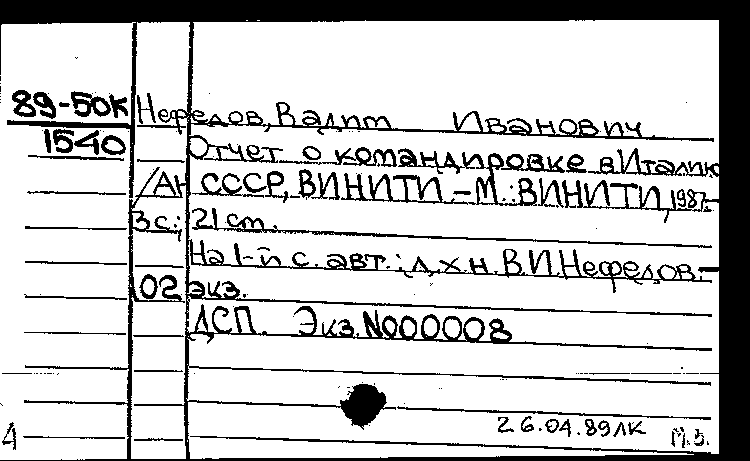 89-50К Нефедов, Вадим Иванович.
1540 Отчет о командировке в Италию
/АН СССР, ВИНИТИ.-М.:ВИНИТИ, 1987.-
3 с.; 21 cm.
На 1-й с. авт.: д.х.н. В.И.Нефедов.-
102 экз.
ДСП. Экз.N000008
26.04.89ЛК М.Б.
4